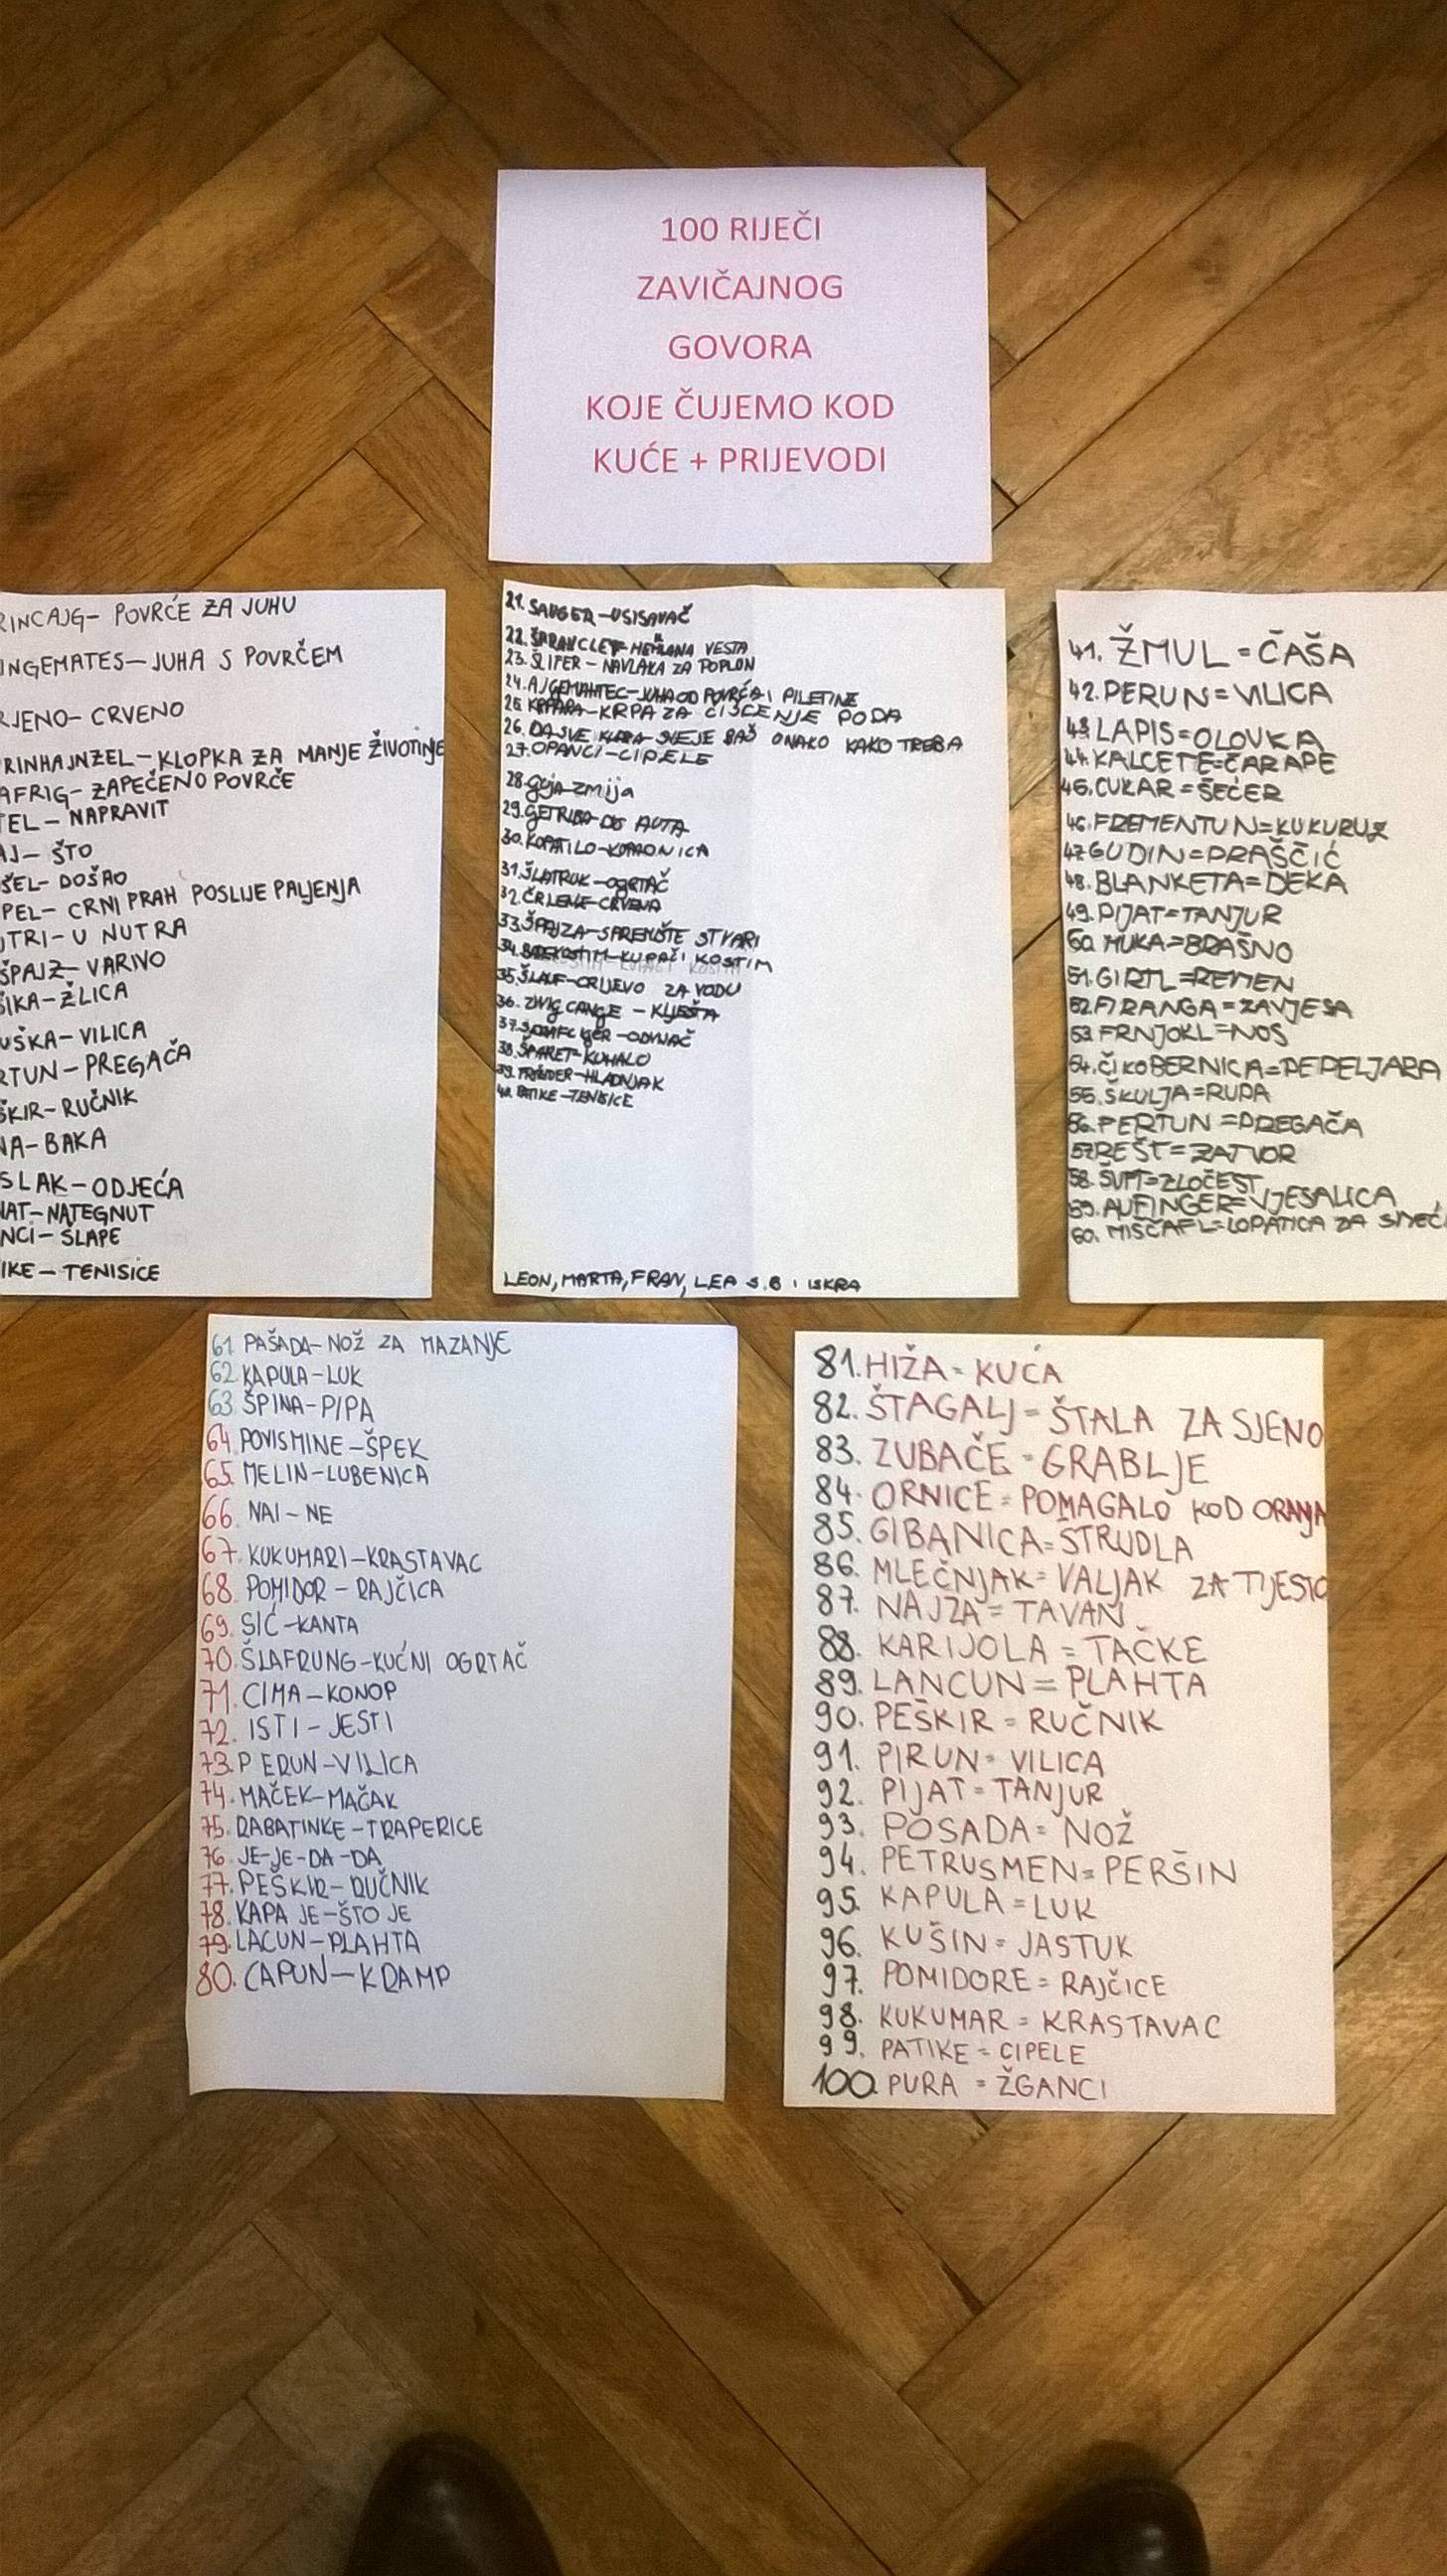 100 RIJEČI
ZAVIČAJNOG
GOVORA
KOJE ČUJEMO KOD
KUĆE + PRIJEVODI
RINCAJG- POVRĆE ZA JUHU
INGEMATES-JUHA S POVRČEM
RJENO- CRVENO
RINHAJNZEL-KLOPKA ZA MANJE ŽIVOTINJE
AFRIG- ZAPEČENO POVRČE
TEL- NAPRAVIT
AJ- ŠTO
ŠEL- DOŠAO
PEL- CRNI PRAH POSLIJE PALJENJA
UTRI- U NUTRA
ŠPAJZ-VARIVO
ŠIKA-ŽLICA
UŠKA-VILICA
RTUN-PREGAČA
ŠKIR-RUČNIK
NA-BAKA
SLAK-ODJEĆA
NAT-NATEGNUT
NCI-ŠLAPE
IKE-TENISICE
21. SAUGER-USISAVAČ
22. VESTA
23. ŠLIPER-NAVLAKA ZA POPLON
24. AJGEMAHTEC-JUHA OD POVRĆA I PILETINE
25. KRPARA-KRPA ZA ČIŠĆENJE PODA
26. DA SVE BAŠ ONAKO KAKO TREBA
27. OPANCI-CIPELE
28. guja-zmija
29. GETRIBA-DIO AUTA
30. KOPATILO-
31. ŠLATRUK-OGRTAČ
32. ČRLENE-CRVENA
33. ŠPAJZA-SPREMIŠTE STVARI
34. KUPAĆI KOSTIM
35. ŠLAUF-CRIJEVO ZA VODU
36. ZWIGCANGE-KLIJEŠTA
37. ODVIJAČ
38. ŠPARET-KUHALO
39. HLADNJAK
40. PATIKE-TENISICE
LEON, MARTA, FRAN, LEA S.B I ISKRA
41. ŽMUL=ČAŠA
42. PERUN=VILICA
43. LAPIS=OLOVKA
44. KALCETE=ČARAPE
45. CUKAR=ŠEĆER
46. FREMENTUN=KUKURUZ
47. GUDIN=PRAŠČIĆ
48. BLANKETA=DEKA
49. PIJAT=TANJUR
50. MUKA=BRAŠNO
51. GIRTL=REMEN
52. FIRANGA=ZAVJESA
53. FRNJOKL=NOS
54. ČIKOBERNICA=PEPELJARA
55. ŠKULJA=RUPA
56. FERTUN=PREGAČA
57. REŠT=ZATVOR
58. ŠUFT=ZLOČEST
59. AUFINGER=VJEŠALICA
60. MISČAFL=LOPATICA ZA SMEĆ
61. PAŠADA-NOŽ ZA MAZANJE
62. KAPULA-LUK
63. ŠPINA-PIPA
64. POVISMINE-ŠPEK
65. MELIN-LUBENICA
66. NAI-NE
67. KUKUMARI-KRASTAVAC
68. POMIDOR-RAJČICA
69. SIĆ-KANTA
70. ŠLAFRUNG-KUĆNI OGRTAČ
71. CIMA-KONOP
72. ISTI-JESTI
73. PERUN-VILICA
74. MAČEK-MAČAK
75. RABATINKE-TRAPERICE
76. JE-JE-DA-DA
77. PEŠKIR-RUČNIK
78. KAPA JE-ŠTO JE
79. LACUN-PLAHTA
80. CAPUN-KRAMP
81. HIŽA=KUĆA
82. ŠTAGALJ=ŠTALA ZA SJENO
83. ZUBAČE=GRABLJE
84. ORNICE=POMAGALO KOD ORANJA
85. GIBANICA=ŠTRUDLA
86. MLEČNJAK=VALJAK ZA TIJESTO
87. NAJZA=TAVAN
88. KARIJOLA=TAČKE
89. LANCUN=PLAHTA
90. PEŠKIR=RUČNIK
91. PIRUN=VILICA
92. PIJAT=TANJUR
93. POSADA=NOŽ
94. PETRUSMEN=PERŠIN
95. KAPULA=LUK
96. KUŠIN=JASTUK
97. POMIDORE=RAJČICE
98. KUKUMAR=KRASTAVAC
99. PATIKE=CIPELE
100. PURA=ŽGANCI